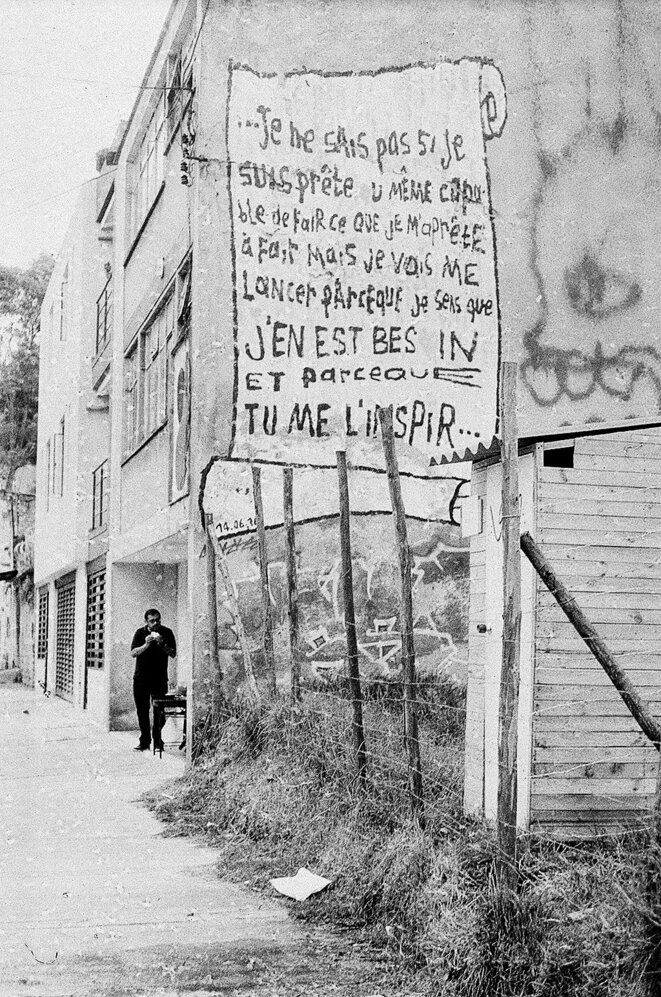 ...Je ne sais pas si je
suis prête u même capa
ble de fair ce que je m'aprête
à fair mais je vais me
lancer parceque je sens que
J'EN EST BES IN
ET parceque
TU ME L'INSPIR...
14.06.